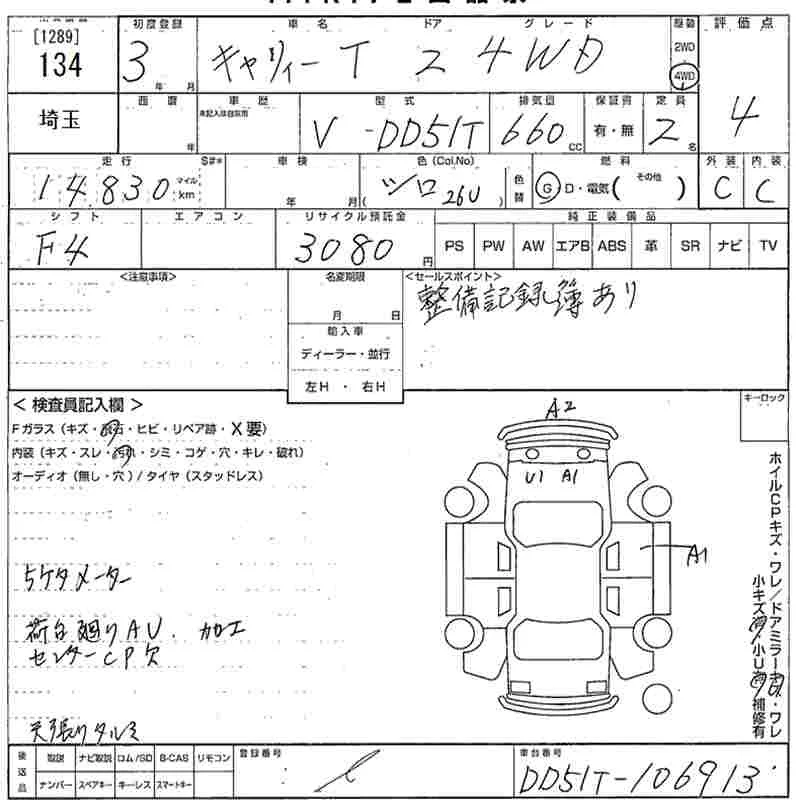 [1289]
134
初度登録 車名 ドア グレード 駆動 評価点
3 年 月 キャリィー T 2 4WD 2WD 4WD
4
埼玉
西暦 年 車歴 未記入は自家用 型式 排気量 保証書 定員
V-DD51T 660 CC 有・無 2 名
走行 S#* 車検 色(Col.No) 燃料 外装 内装
14830 マイル km 年 月 ( シロ 26U ) 色替 G D・電気( その他 ) C C
シフト エアコン リサイクル預託金 純正装備品
F4 3080 円 PS PW AW エアB ABS 革 SR ナビ TV
<注意事項> 名変期限 <セールスポイント>
月 日 整備記録簿あり
輸入車
ディーラー・並行
左H ・ 右H
<検査員記入欄> キーロック
Fガラス(キズ・飛石・ヒビ・リペア跡・X要)
内装(キズ・スレ・汚れ・シミ・コゲ・穴・キレ・破れ)
オーディオ(無し・穴)/タイヤ(スタッドレス)
A2
U1 A1
A1
ホイルCPキズ・ワレ/ドアミラーキズ・ワレ
小キズ有/小U有 補修有
5ケタメーター
荷台廻りAU. 加工
センターCP欠
天張りタルミ
後送品 取説 ナビ取説 ロム/SD B-CAS リモコン 登録番号 車台番号
ナンバー スペアキー キーレス スマートキー DD51T-106913